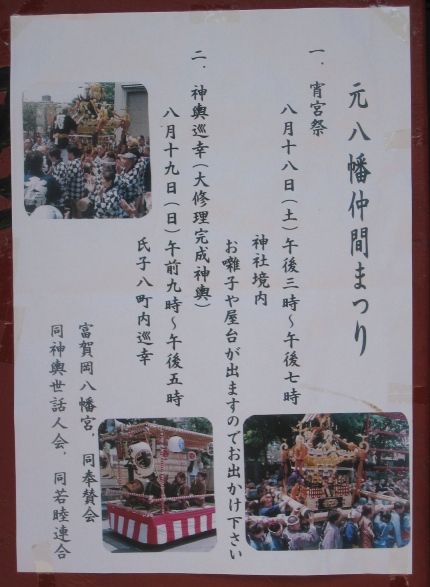 元八幡仲間まつり
一．宵宮祭
八月十八日（土）午後三時～午後七時
神社境内
お囃子や屋台が出ますのでお出かけ下さい
二．神輿巡幸（大修理完成神輿）
八月十九日（日）午前九時～午後五時
氏子八町内巡幸
富賀岡八幡宮．同奉賛会
同神輿世話人会．同若睦連合